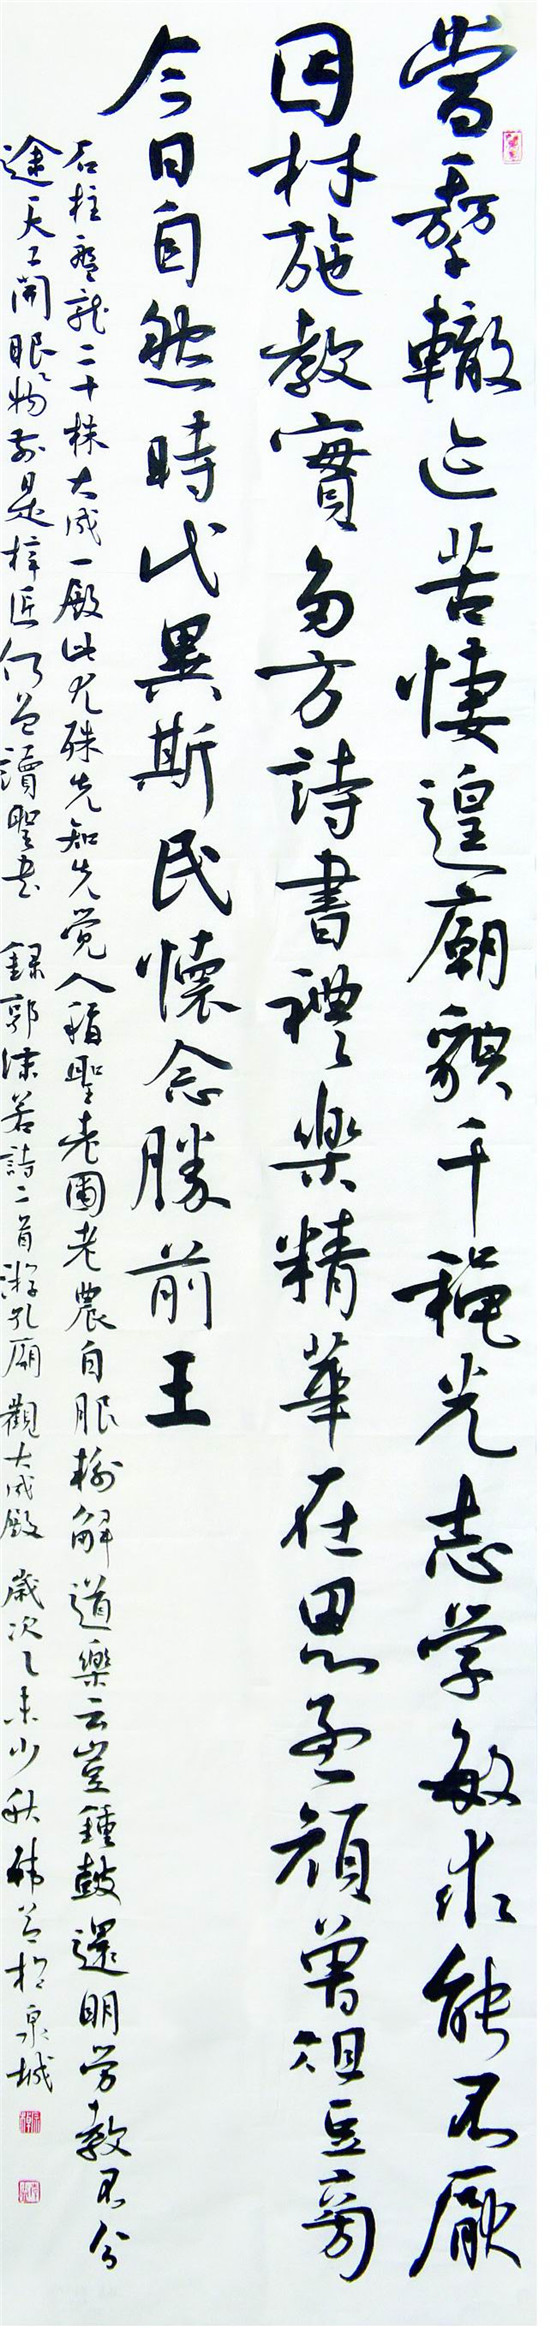 當轍迹苦悽遑廟貌千穐光志学敏求能不厭
因材施教實多方詩書禮樂精華在思孟顏曾俎豆旁
今日自然時代異斯民懷念勝前王
石柱盤龍二十株大成一殿此尤殊先知先覺人稱聖老圃老農自服輸解道樂云豈鍾鼓還明勞教不分
途天工開眼物前是梓匠何曾讀聖書 録郭沫若詩二首游孔廟觀大成殿 歲次乙未少秋於泉城